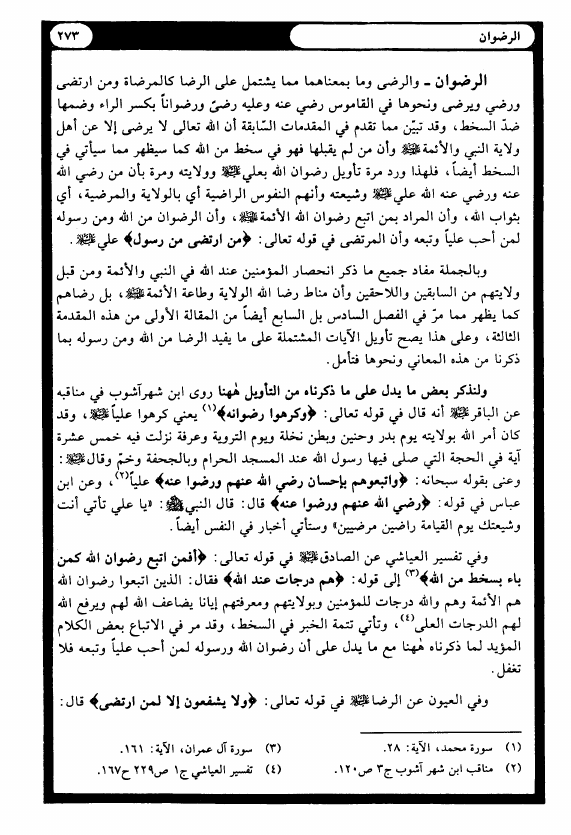 ٢٧٣ الرضوان
الرضوان ـ والرضى وما بمعناهما مما يشتمل على الرضا كالمرضاة ومن ارتضى
ورضي ويرضى ونحوها في القاموس رضي عنه وعليه رضىً ورضواناً بكسر الراء وضمها
ضدّ السخط، وقد تبيّن مما تقدم في المقدمات السّابقة أن الله تعالى لا يرضى إلا عن أهل
ولاية النبي والأئمة ﷺ وأن من لم يقبلها فهو في سخط من الله كما سيظهر مما سيأتي في
السخط أيضاً، فلهذا ورد مرة تأويل رضوان الله بعلي ﷺ وولايته ومرة بأن من رضي الله
عنه ورضي عنه الله علي ﷺ وشيعته وأنهم النفوس الراضية أي بالولاية والمرضية، أي
بثواب الله، وأن المراد بمن اتبع رضوان الله الأئمة ﷺ، وأن الرضوان من الله ومن رسوله
لمن أحب علياً وتبعه وأن المرتضى في قوله تعالى: ﴿من ارتضى من رسول﴾ علي ﷺ.
وبالجملة مفاد جميع ما ذكر انحصار المؤمنين عند الله في النبي والأئمة ومن قبل
ولايتهم من السابقين واللاحقين وأن مناط رضا الله الولاية وطاعة الأئمة ﷺ، بل رضاهم
كما يظهر مما مرّ في الفصل السادس بل السابع أيضاً من المقالة الأولى من هذه المقدمة
الثالثة، وعلى هذا يصح تأويل الآيات المشتملة على ما يفيد الرضا من الله ومن رسوله بما
ذكرنا من هذه المعاني ونحوها فتأمل.
ولنذكر بعض ما يدل على ما ذكرناه من التأويل هٰهنا روى ابن شهرآشوب في مناقبه
عن الباقر ﷺ أنه قال في قوله تعالى: ﴿وكرهوا رضوانه﴾(١) يعني كرهوا علياً ﷺ، وقد
كان أمر الله بولايته يوم بدر وحنين وبطن نخلة ويوم التروية وعرفة نزلت فيه خمس عشرة
آية في الحجة التي صلى فيها رسول الله عند المسجد الحرام وبالجحفة وخمّ وقال ﷺ:
وعنى بقوله سبحانه: ﴿واتبعوهم بإحسان رضي الله عنهم ورضوا عنه﴾ علياً(٢)، وعن ابن
عباس في قوله: ﴿رضي الله عنهم ورضوا عنه﴾ قال: قال النبي ﷺ: «يا علي تأتي أنت
وشيعتك يوم القيامة راضين مرضيين» وستأتي أخبار في النفس أيضاً.
وفي تفسير العياشي عن الصادق ﷺ في قوله تعالى: ﴿أفمن اتبع رضوان الله كمن
باء بسخط من الله﴾(٣) إلى قوله: ﴿هم درجات عند الله﴾ فقال: الذين اتبعوا رضوان الله
هم الأئمة وهم والله درجات للمؤمنين وبولايتهم ومعرفتهم إيانا يضاعف الله لهم ويرفع الله
لهم الدرجات العلى(٤)، وتأتي تتمة الخبر في السخط، وقد مر في الاتباع بعض الكلام
المؤيد لما ذكرناه هٰهنا مع ما يدل على أن رضوان الله ورسوله لمن أحب علياً وتبعه فلا
تغفل.
وفي العيون عن الرضا ﷺ في قوله تعالى: ﴿ولا يشفعون إلا لمن ارتضى﴾ قال:
(١) سورة محمد، الآية: ٢٨.
(٢) مناقب ابن شهر آشوب ج٣ ص١٢٠.
(٣) سورة آل عمران، الآية: ١٦١.
(٤) تفسير العياشي ج١ ص٢٢٩ ح١٦٧.